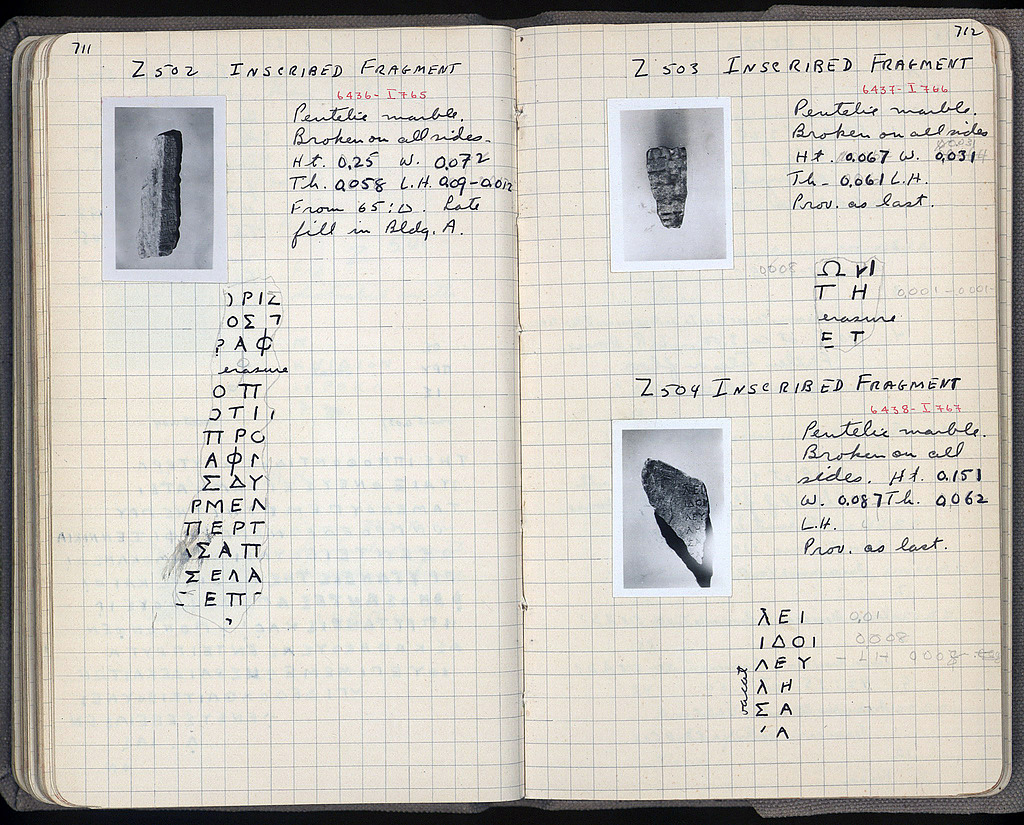 711
Z 502 INSCRIBED FRAGMENT
6436 - I 765
Pentelic marble.
Broken on all sides.
Ht. 0.25 W. 0.072
Th. 0.058 L.H. 0.09-0.012
From 65:D. Late
fill in Bldg. A.
ΡΙΣ
ΟΣ
ΑΦ
erasure
ΟΠ
ΤΙ
ΠΡΟ
ΑΦΓ
ΣΔΥ
ΡΜΕΛ
ΠΕΡΤ
ΣΑΠ
ΣΕΛΑ
ΕΠ
712
Z 503 INSCRIBED FRAGMENT
6437 - I 766
Pentelic marble.
Broken on all sides
Ht. 0.067 W. 0.031
Th. 0.061 L.H.
Prov. as last.
0.008
Ω ΝΙ
Τ Η
erasure
Ε Τ
Z 504 INSCRIBED FRAGMENT
6438 - I 767
Pentelic marble.
Broken on all
sides. Ht. 0.151
W. 0.087 Th. 0.062
L.H.
Prov. as last.
λ Ε Ι 0.01
Ι Δ Ο Ι 0.008
Λ Ε Υ
vacat
λ Η
Σ Α
Α